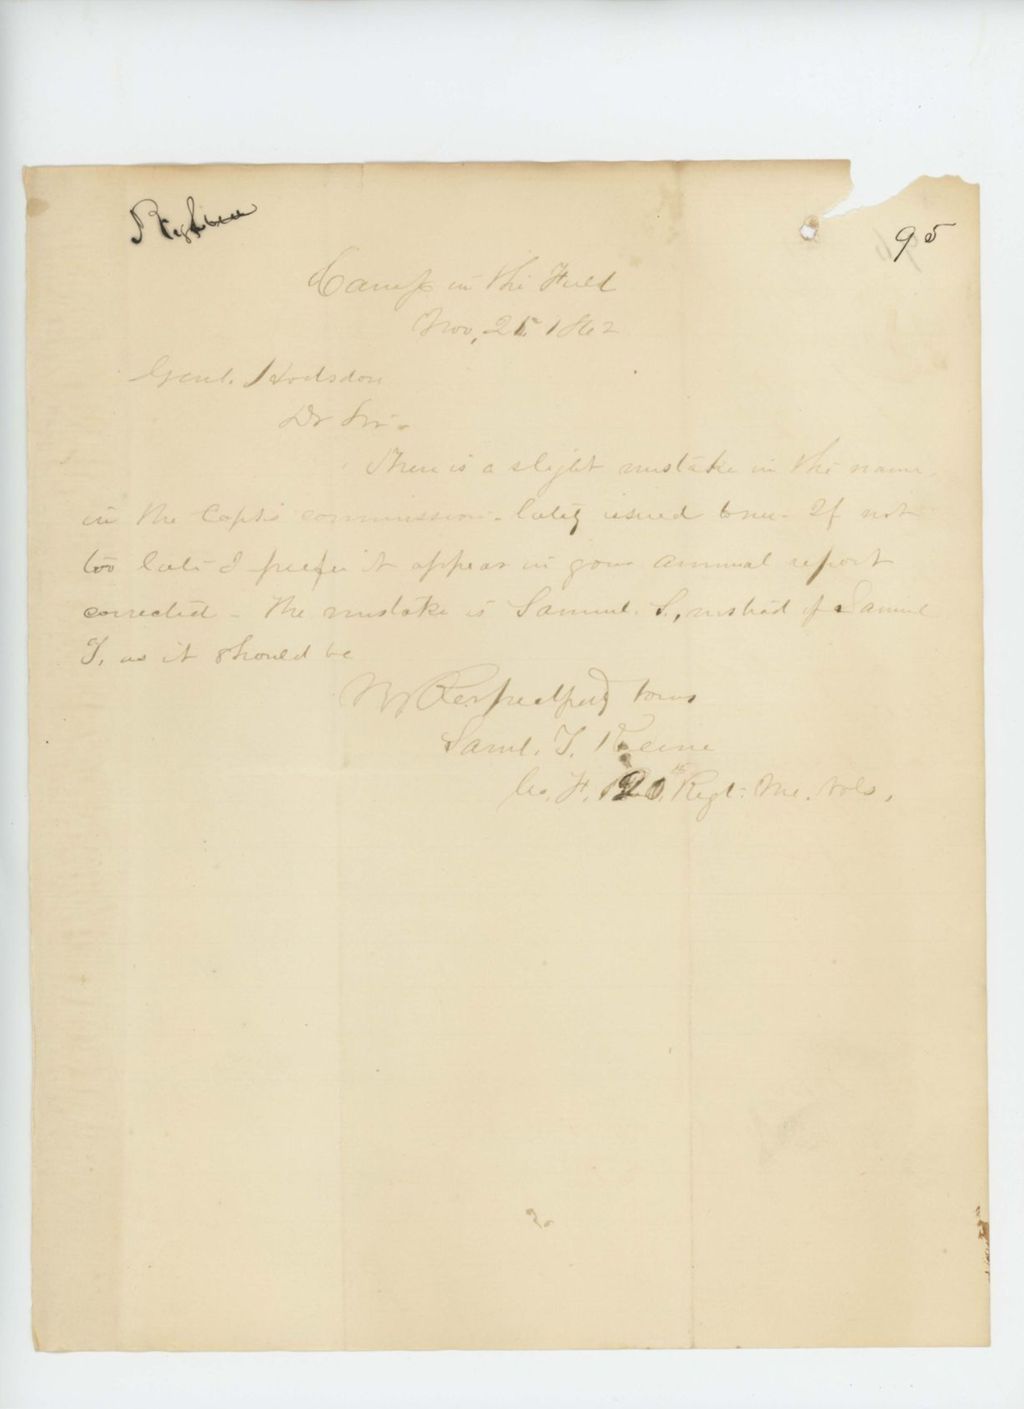 95
Camp in the Field
Nov, 25. 1862
Genl. Hodsdon
Dr Sir -
There is a slight mistake in the name,
in the Capt's commission - lately issued to me. If not
too late I prefer it appear in your annual report
corrected - The mistake is Samuel. S., instead of Samuel
T, as it should be
Respectfully yours
Saml. T. Keene
Co. F. 20th Regt. Me. Vols.